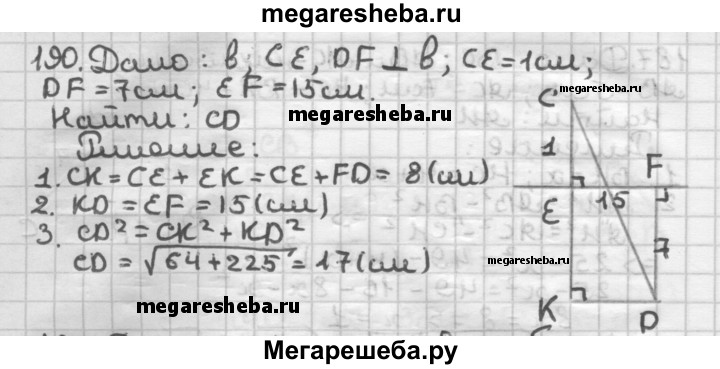 megaresheba.ru
190. Дано: b, CE, DF ⊥ b; CE = 1 см;
DF = 7 см; EF = 15 см.
megaresheba.ru
Найти: CD
megaresheba.ru
Решение:
1. CK = CE + EK = CE + FD = 8 (см)
2. KD = EF = 15 (см)
3. CD² = CK² + KD²
CD = √64 + 225 = 17 (см)
megaresheba.ru
C
1
F
E
15
7
megaresheba.ru
K
D
Мегарешеба.ру